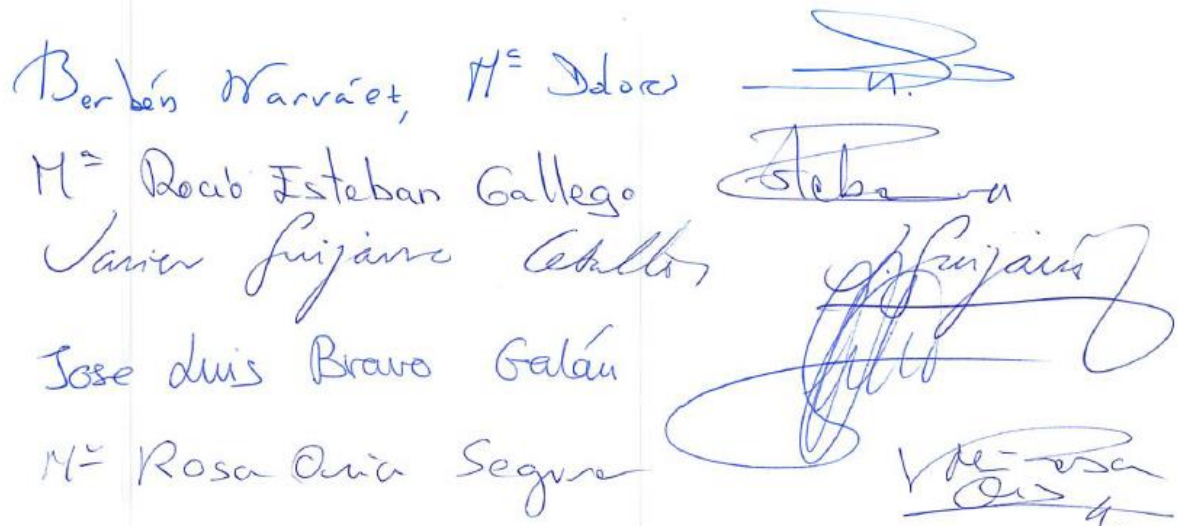 Berbén Narváez, Mª Dolores
Mª Rocío Esteban Gallego Esteban
Javier Guijarro Ceballos J. Guijarro
Jose Luis Bravo Galán
Mª Rosa Oria Segura Mª Rosa